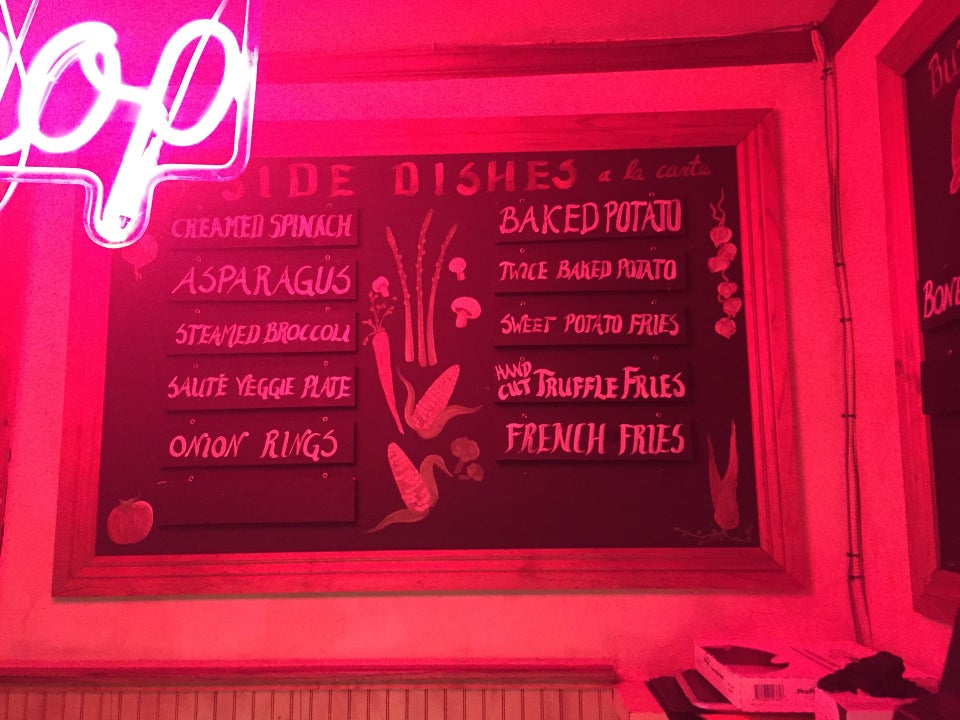 op
SIDE DISHES a la carte
CREAMED SPINACH
ASPARAGUS
STEAMED BROCCOLI
SAUTÉ VEGGIE PLATE
ONION RINGS
BAKED POTATO
TWICE BAKED POTATO
SWEET POTATO FRIES
HAND CUT TRUFFLE FRIES
FRENCH FRIES
BONE